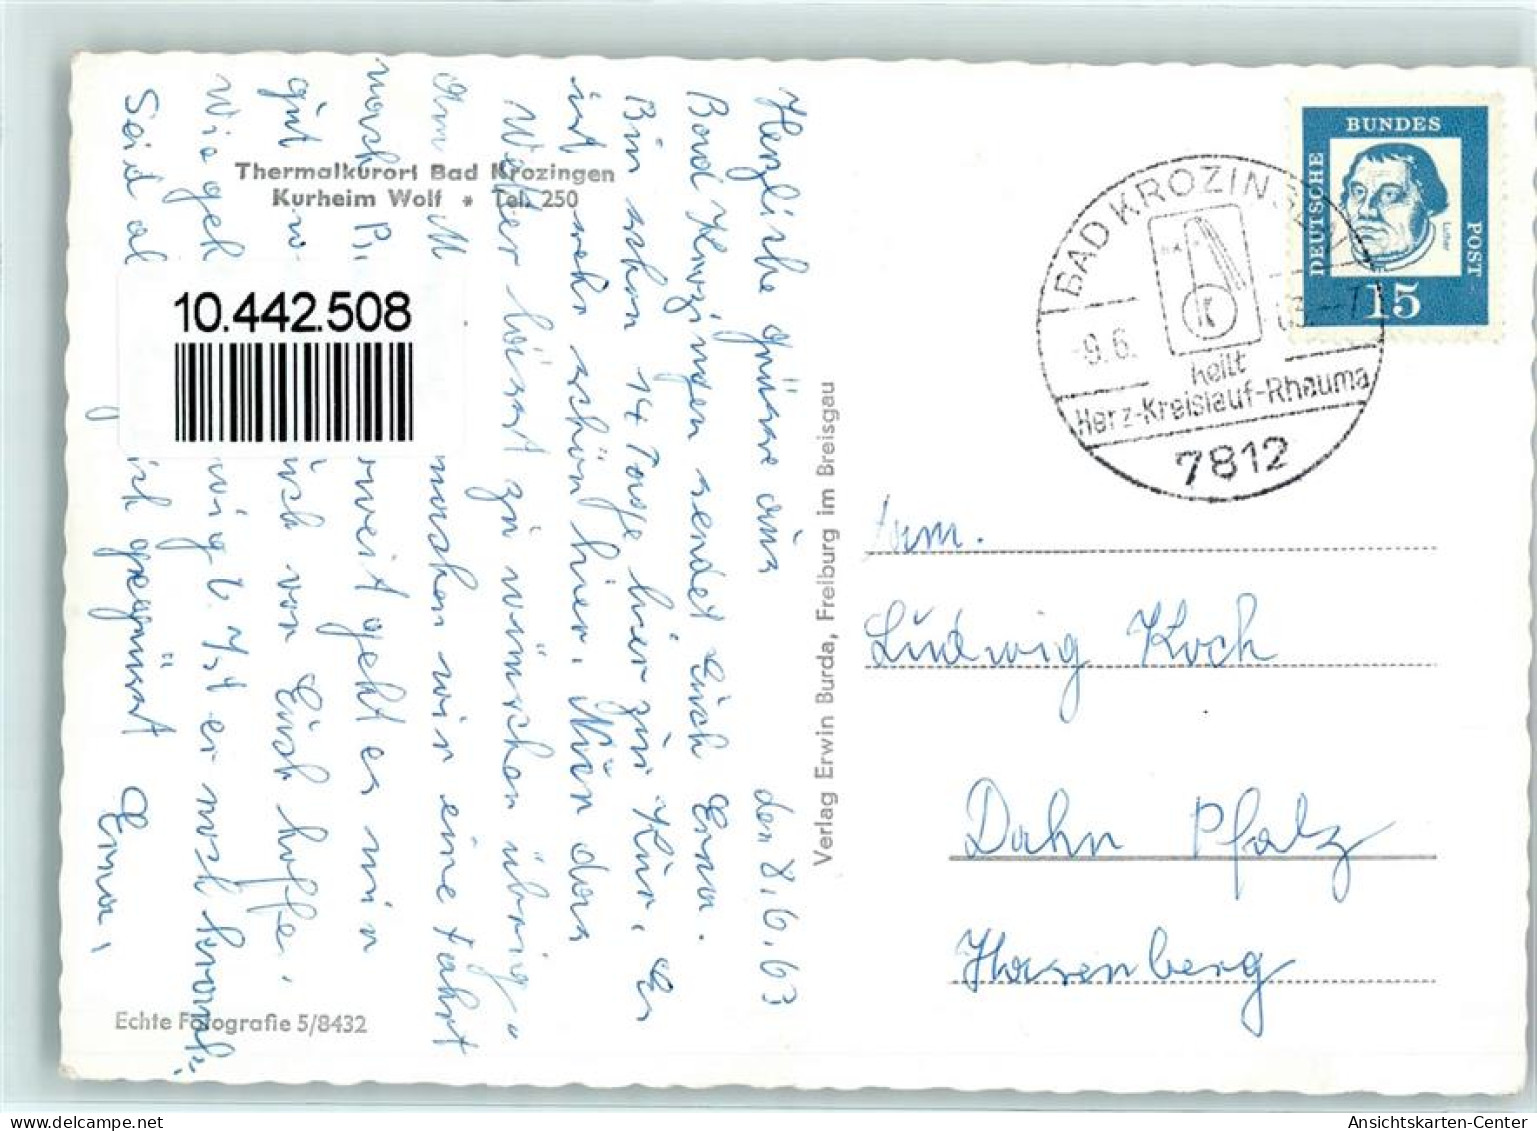 Thermalkurort Bad Krozingen
Kurheim Wolf * Tel. 250
den 8.6.63
Herzliche Grüsse aus
Bad Krozingen sendet Euch Erna.
Bin schon 14 Tage hier zur Kur. Es
ist sehr schön hier. Nur das
Wetter lässt zu wünschen übrig.
Am M machen wir eine Fahrt
nach P weit geht es mir
gut Euch von Euch hoffe.
Wie geh wig b. Ist er noch krank.
Seid al ich gegrüsst Erna.
10.442.508
Echte Fotografie 5/8432
Verlag Erwin Burda, Freiburg im Breisgau
BAD KROZINGEN
-9.6.63.-
K
heilt
Herz-Kreislauf-Rheuma
7812
DEUTSCHE
BUNDES
POST
Luther
15
Fam.
Ludwig Koch
Dahn Pfalz
Hasenberg
Ansichtskarten-Center